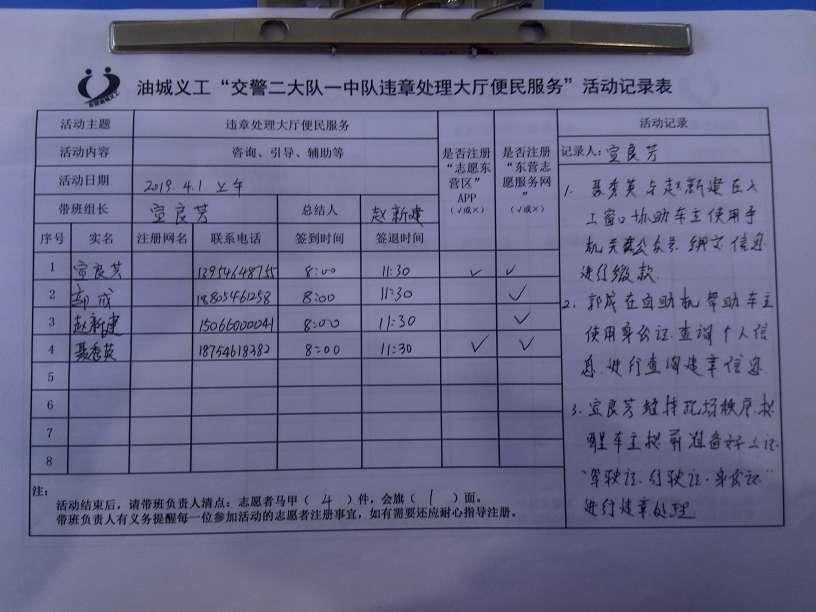 油城义工“交警二大队一中队违章处理大厅便民服务”活动记录表
活动主题 违章处理大厅便民服务 是否注册“志愿东营区”APP（√或×） 是否注册“东营志愿服务网”（√或×） 活动记录
活动内容 咨询、引导、辅助等 记录人：宣良芳
活动日期 2019.4.1 上午
带班组长 宣良芳 总结人 赵新建
序号 实名 注册网名 联系电话 签到时间 签退时间
1 宣良芳 8:00 11:30 √ √
2 郭成 18805461258 8:00 11:30 √
3 赵新建 15066000041 8:00 11:30 √
4 聂秀英 18754618382 8:00 11:30 √ √
5
6
7
8
1. 聂秀英与赵新建在人
工窗口协助车主使用手
机关注公众号绑定信息
进行缴款.
2. 郭成在自助机帮助车主
使用身份证查询个人信
息.进行查询违章信息
3. 宣良芳维持现场秩序.提
醒车主提前准备好三证.
“驾驶证.行驶证.身份证”
进行违章处理
注：
活动结束后，请带班负责人清点：志愿者马甲（ 4 ）件，会旗（ 1 ）面。
带班负责人有义务提醒每一位参加活动的志愿者注册事宜，如有需要还应耐心指导注册。